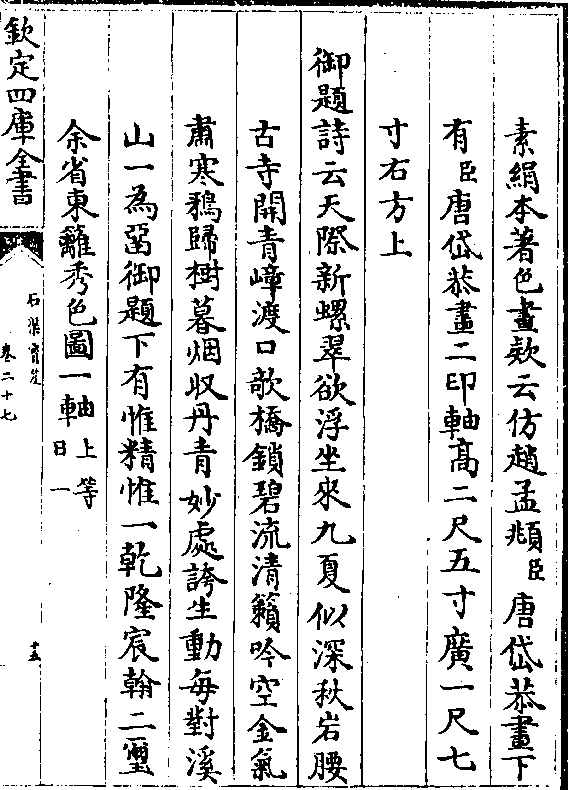 素絹本著色畫欵云仿趙孟頫臣唐岱恭畫下
有臣唐岱恭畫二印軸髙二尺五寸廣一尺七
寸右方上
御題詩云天際新螺翠欲浮坐來九夏似深秋岩腰
古寺開青嶂渡口欹橋鎖碧流清籟吟空金氣
肅寒鴉歸樹暮烟収丹青妙處誇生動每對溪
山一為留御題下有惟精惟一乾隆宸翰二璽
余省東籬秀色圖一軸上等日一
欽定四庫全書
石渠寳笈
卷二十七